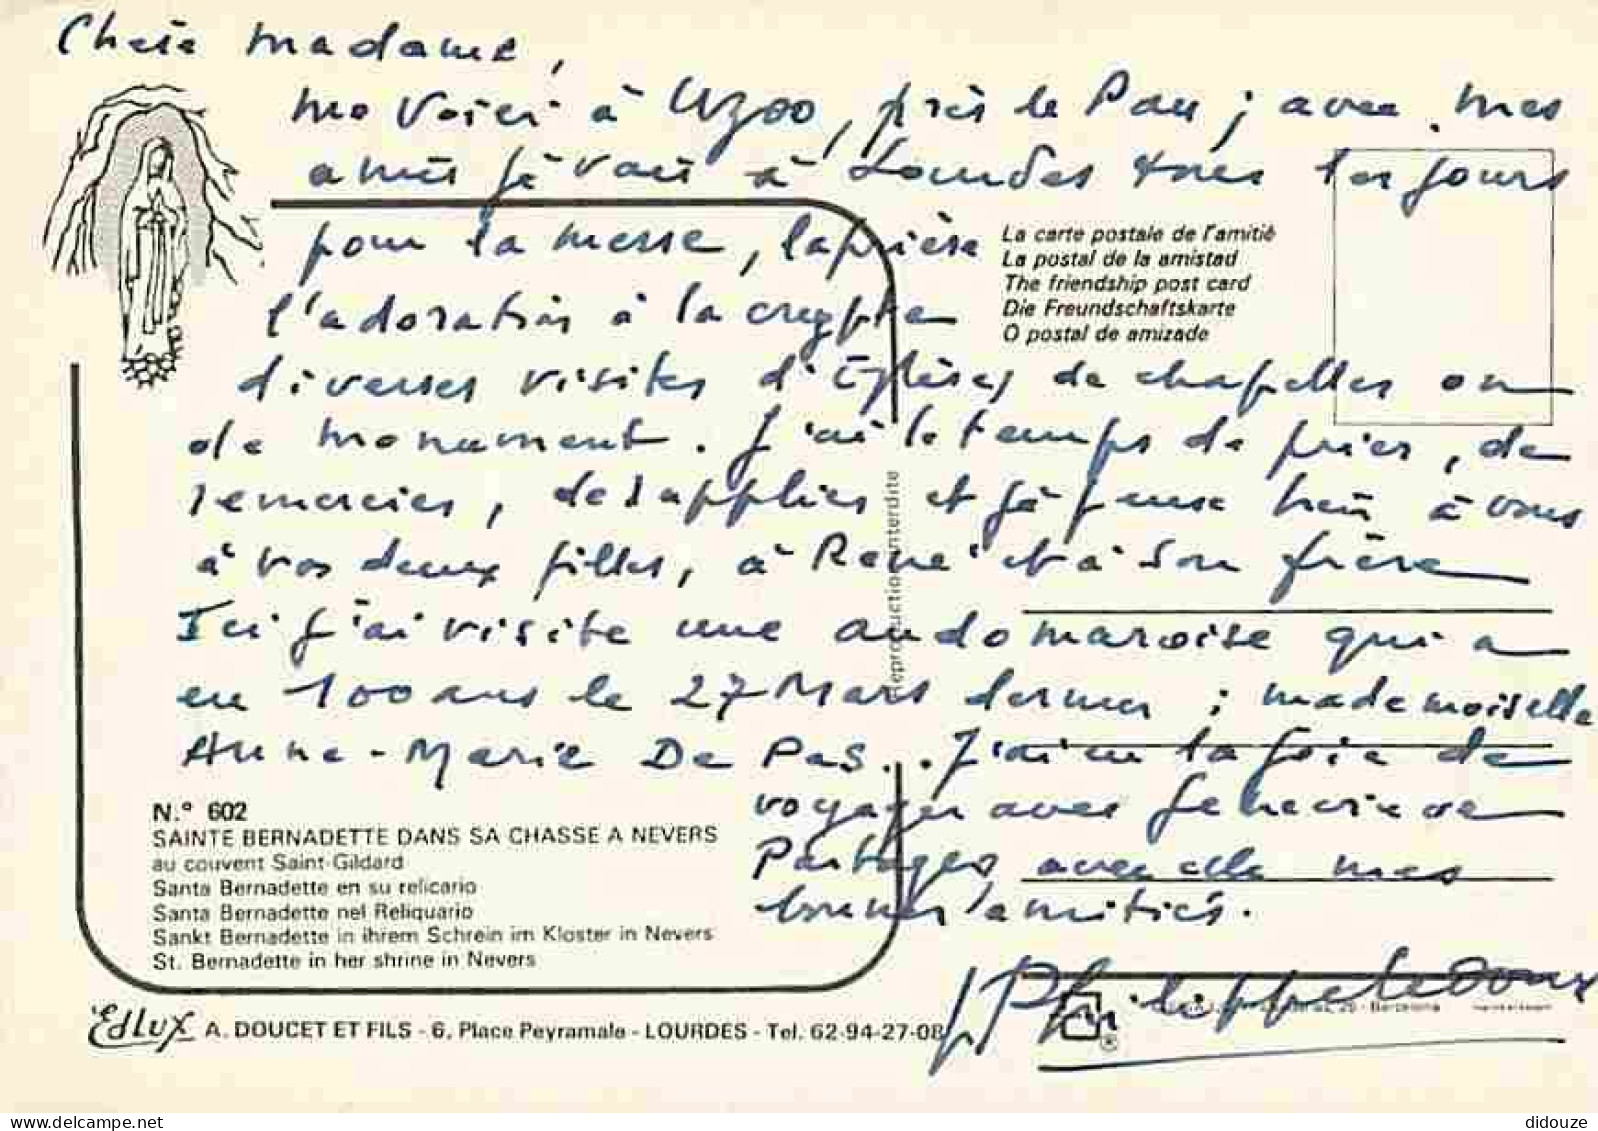 Chère Madame,
me voici à Uzoo, près de Pau ; avec mes
amis je vais à Lourdes tous les jours
pour la messe, la prière
l'adoration à la crypte
diverses visites d'Eglises, de chapelles ou
de monument. J'ai le temps de prier, de
remercier, de supplier et je pense bien à vous
à vos deux filles, à René et à son frère
Ici j'ai visité une audomaroise qui a
eu 100 ans le 27 Mars dernier ; mademoiselle
Anne-Marie De Pas.. J'ai eu la joie de
voyager avec Geneviève
Partagez avec elle mes
bonnes amitiés.
p Philippe Ledoux
La carte postale de l'amitié
La postal de la amistad
The friendship post card
Die Freundschaftskarte
O postal de amizade
reproduction interdite
N.º 602
SAINTE BERNADETTE DANS SA CHASSE A NEVERS
au couvent Saint-Gildard
Santa Bernadette en su relicario
Santa Bernadette nel Reliquario
Sankt Bernadette in ihrem Schrein im Kloster in Nevers
St. Bernadette in her shrine in Nevers
Edlux A. DOUCET ET FILS - 6, Place Peyramale - LOURDES - Tel. 62-94-27-08
Barcelona
®
delcampe.net
didouze